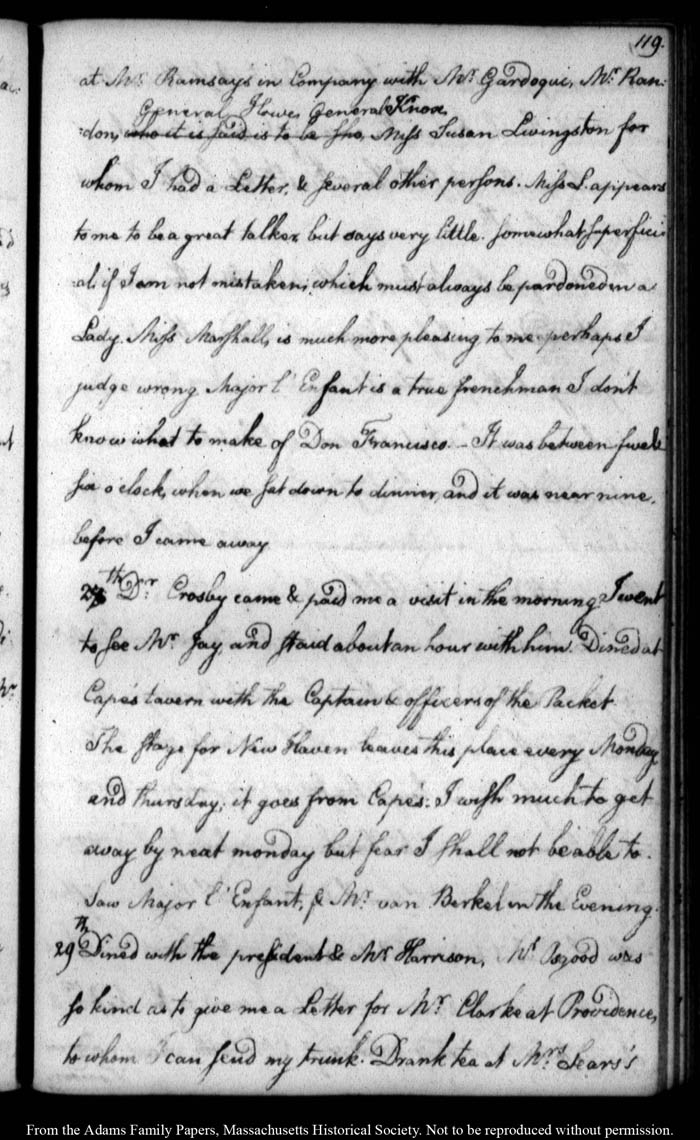 119.
at Mr. Ramsays in Company with Mr. Gardoqui, Mr. Ran:
General Howe, General Knox,
:don, who it is said is to be Sho, Miss Susan Livingston for
whom I had a Letter, & several other persons. Miss L. appears
to me to be a great talker, but says very little. Somewhat superfici
:al, if I am not mistaken; which must always be pardoned in a
Lady. Miss Marshall, is much more pleasing to me perhaps I
judge wrong Major l'Enfant is a true frenchman I don't
know what to make of Don Francisco. — It was between five &
six o'clock, when we sat down to dinner, and it was near nine,
before I came away.
th Dr. Crosby came & paid me a visit in the morning I went
to see Mr. Jay and staid about an hour with him. Dined at
Cape's tavern with the Captain & officers of the Packet
The stage for New Haven leaves this place every Monday,
and thursday; it goes from Cape's: I wish much to get
away by next monday but fear I shall not be able to.
Saw Major l'Enfant, & Mr. van Berkel in the Evening.
29th Dined with the president & Mr. Harrison, Mr. Osgood was
so kind as to give me a Letter for Mr. Clarke at Providence,
to whom I can send my trunk. Drank tea at Mrs. Sears's
From the Adams Family Papers, Massachusetts Historical Society. Not to be reproduced without permission.